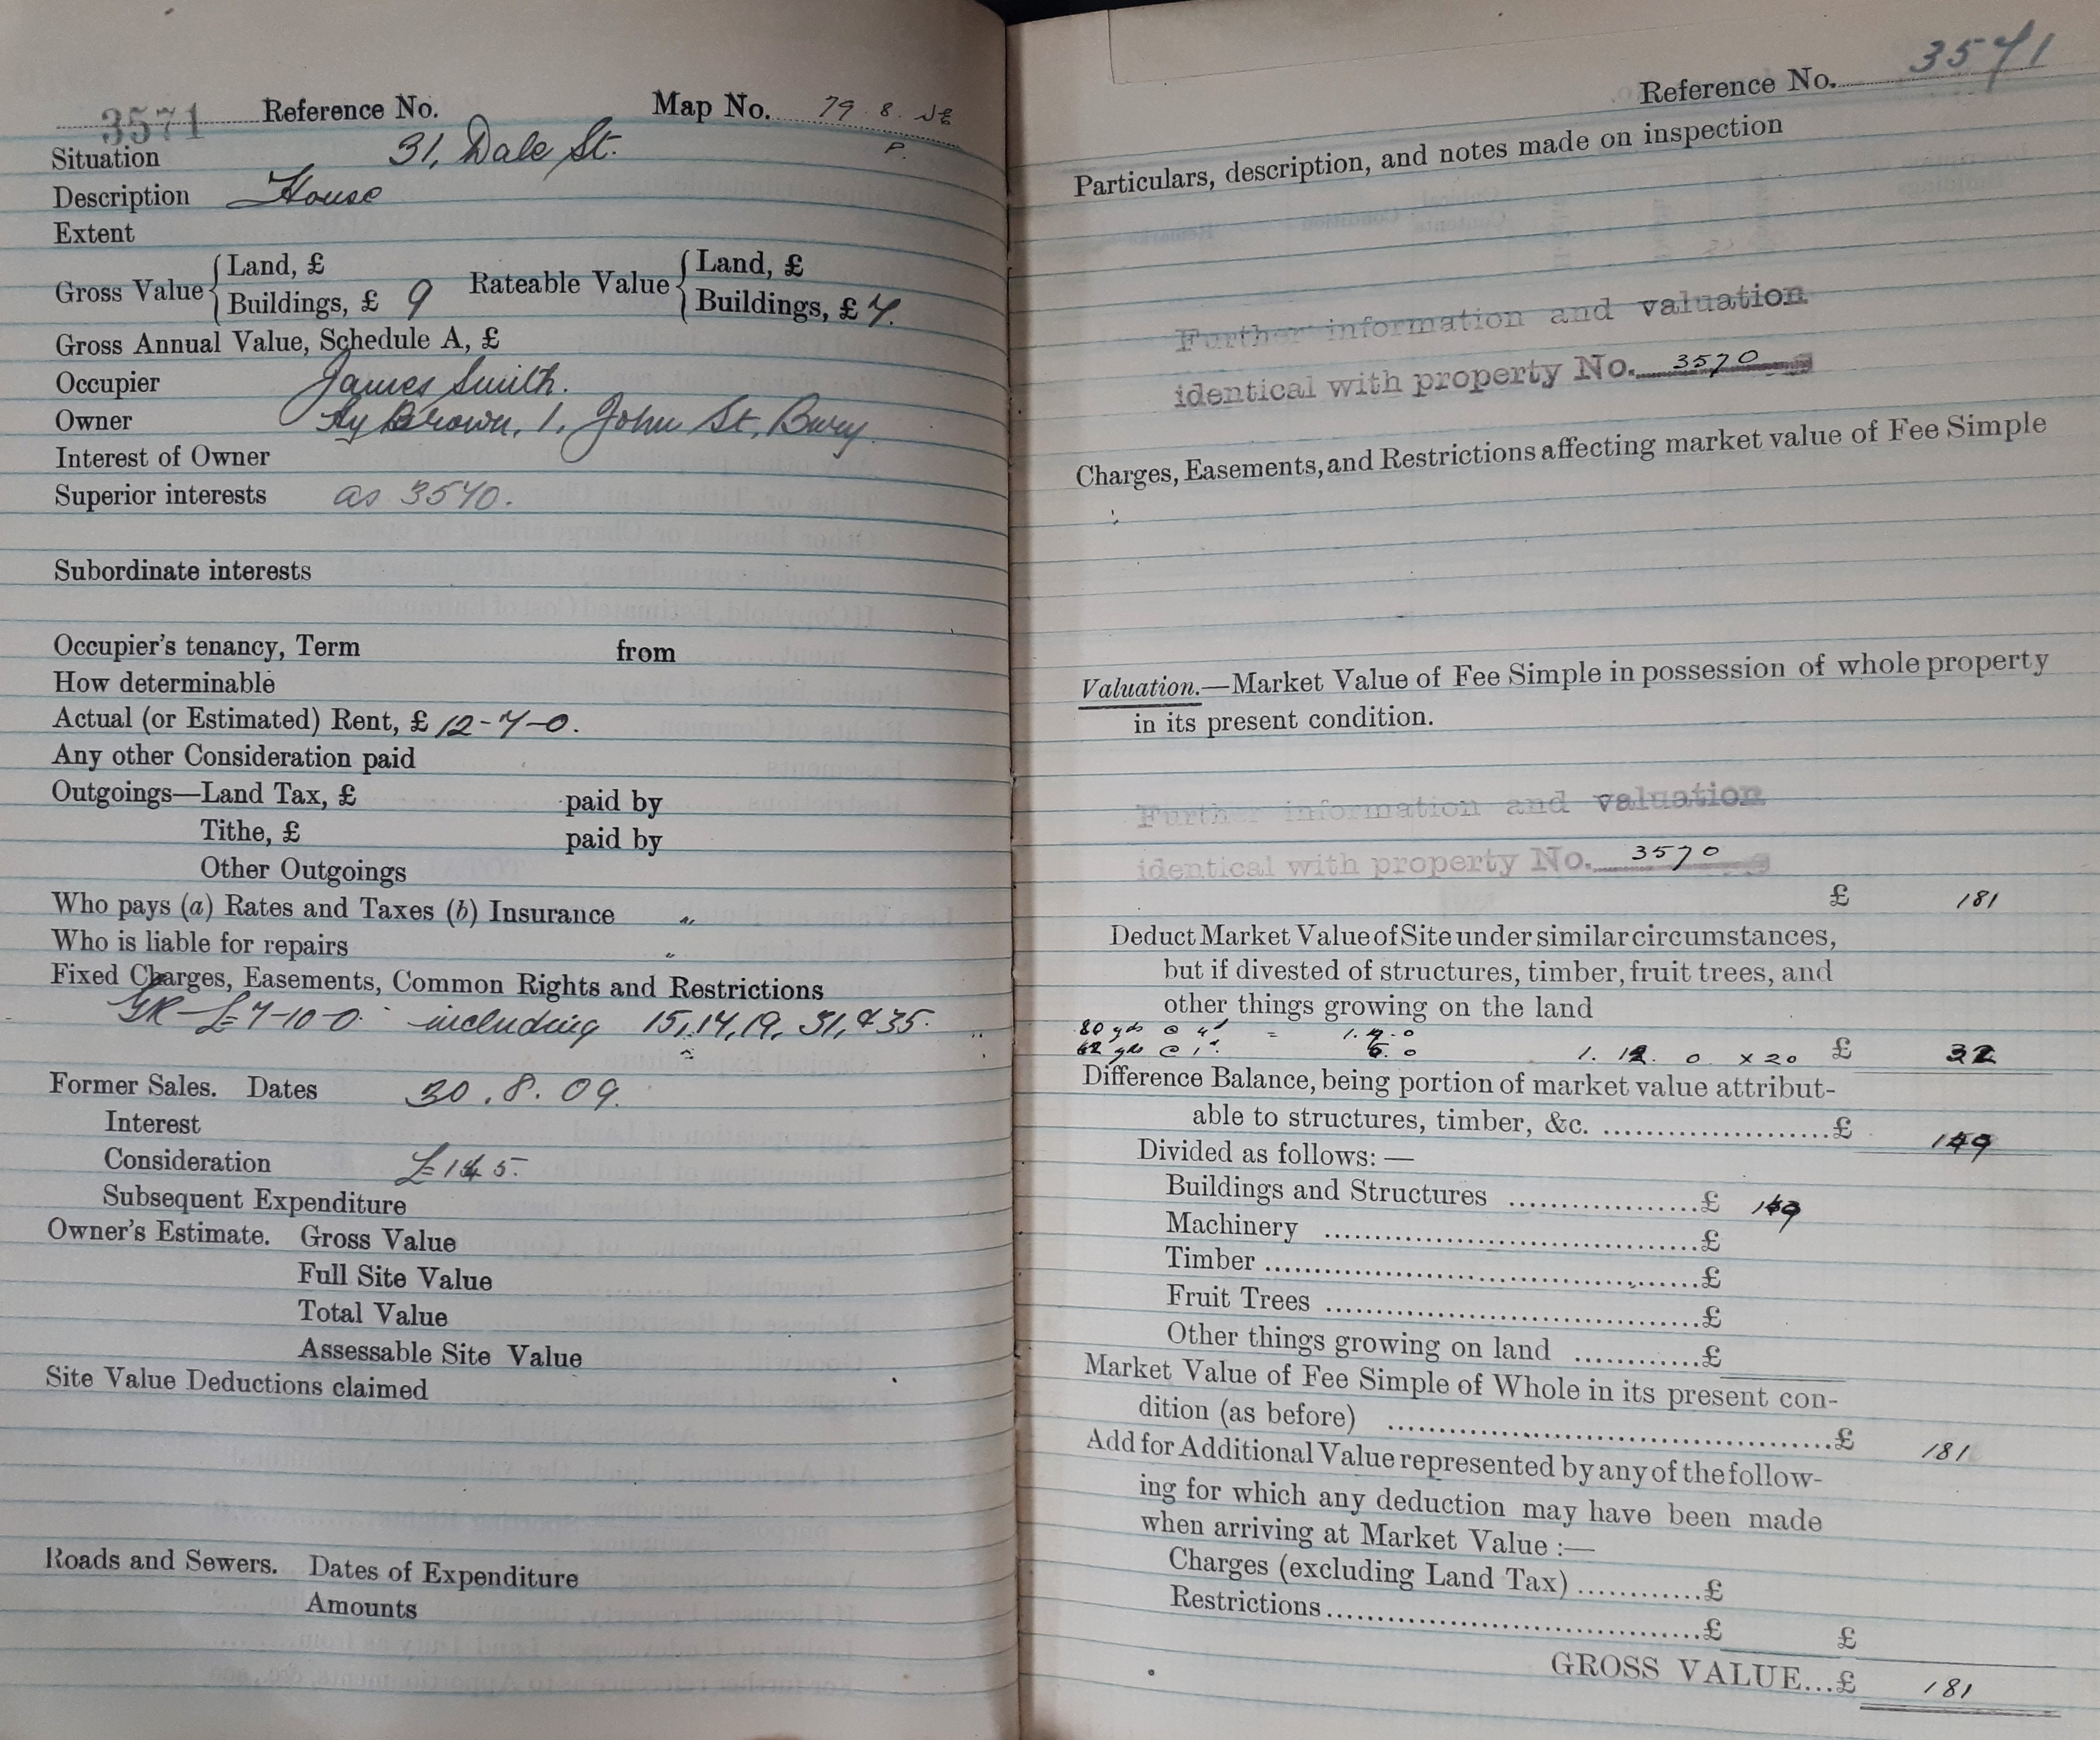 3571 Reference No. Map No. 79.8. NE
P.
Situation 31, Dale St.
Description House
Extent
Gross Value { Land, £
Buildings, £ 9
Rateable Value { Land, £
Buildings, £ 7.
Gross Annual Value, Schedule A, £
Occupier James Smith.
Owner Hy Brown, 1, John St, Bury
Interest of Owner
Superior interests as 3570.
Subordinate interests
Occupier's tenancy, Term from
How determinable
Actual (or Estimated) Rent, £ 12-7-0.
Any other Consideration paid
Outgoings—Land Tax, £ paid by
Tithe, £ paid by
Other Outgoings
Who pays (a) Rates and Taxes (b) Insurance "
Who is liable for repairs "
Fixed Charges, Easements, Common Rights and Restrictions
GR — £7-10-0 including 15, 17, 19, 31, & 35.
Former Sales. Dates 30.8.09.
Interest
Consideration £145.
Subsequent Expenditure
Owner's Estimate. Gross Value
Full Site Value
Total Value
Assessable Site Value
Site Value Deductions claimed
Roads and Sewers. Dates of Expenditure
Amounts
Reference No. 3571
Particulars, description, and notes made on inspection
Further information and valuation
identical with property No. 3570
Charges, Easements, and Restrictions affecting market value of Fee Simple
Valuation.—Market Value of Fee Simple in possession of whole property
in its present condition.
Further information and valuation
identical with property No. 3570
£ 181
Deduct Market Value of Site under similar circumstances,
but if divested of structures, timber, fruit trees, and
other things growing on the land
80 yds @ 4d = 1. 7. 0
62 yds @ 1d. 5. 0 1. 12. 0 x 20 £ 32
Difference Balance, being portion of market value attribut-
able to structures, timber, &c. £ 149
Divided as follows:—
Buildings and Structures £ 149
Machinery £
Timber £
Fruit Trees £
Other things growing on land £
Market Value of Fee Simple of Whole in its present con-
dition (as before) £ 181
Add for Additional Value represented by any of the follow-
ing for which any deduction may have been made
when arriving at Market Value :—
Charges (excluding Land Tax) £
Restrictions £ £
GROSS VALUE...£ 181